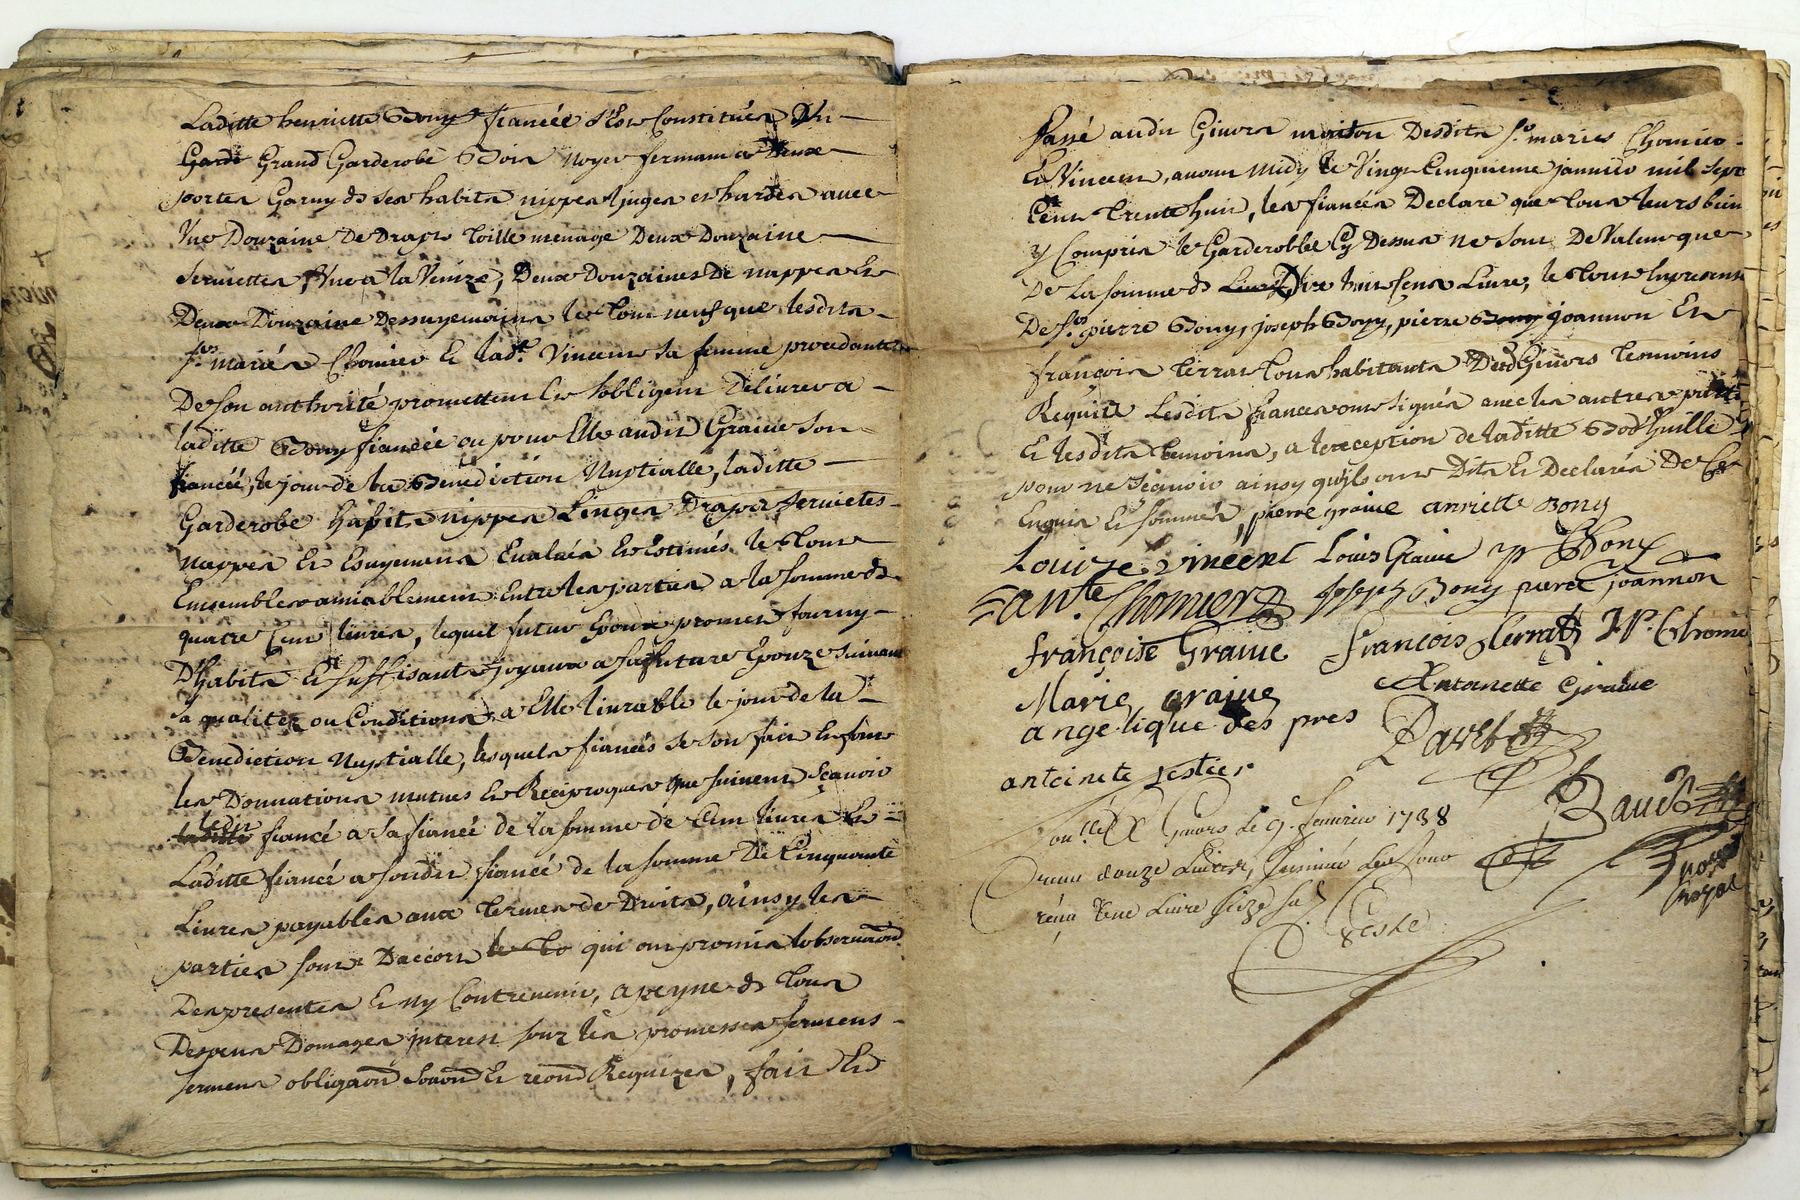 Laditte henriette Bony fiancée s'est Constituée Un
Garde Grand Garderobe Bois noyer fermant a deux
portes Garny de ses habits nippes linges et hardes avec
Une Douzaine De Draps toille menage Deux Douzaine
serviettes, Deux Douzaines De nappes Et
Deux Douzaine Dessuyemains le tout neuf que lesdits
Sr. mariés Chomier Et lad.e Vincent sa femme procedante
De son authorité promettent Et s'obligent Délivrer a
laditte Bony fiancée ou pour Elle audit Graine son
fiancée, le jour de la Benediction Nuptialle, laditte
Garderobe habits nippes Linges Draps serviettes
nappes Et Esuyemens Evalués Et Estimés le tout
Ensemble amiablement Entre les parties a la somme de
quatre Cent livres, lequel futur Epoux promet fourny
D'habits Et suffisants joyaux a sa future Epouze suivant
sa qualitez ou Conditions, a Elle livrable le jour de la
Benediction Nuptialle, lesquels fiancés se son fait Et font
les Donnations mutues Et Reciproques que suivent Sçavoir
ledit
laditte fiancé a sa fianée de la somme de Cent livres Et
Laditte fiancée a sondit fiancé de la somme De Cinquante
Livres payables aux termes de Droits, ainsy les
parties sont Daccors qui ont promis lobservaon
Des presentes Et ny Contrevenir, a peyne de tous
Despens Domages interest sous les promesses sermens
sermens obligaon Et Requizes, fait Et
Passé audit Givors maison Desdits Sr. mariés Chomier
Et Vincent, avant midy le Vingt Cinquieme janvier mil sept
Cent trente huit, les fiancés Declare que tous leurs bien
y Compris le Garderobbe Cy Dessus ne sont De Valeur que
De la somme de huit sens Livre, le tout En presence
De Srs. pierre Bony, joseph Bony, pierre Bony joannon Et
françois terrat tous habitants Dud Givors temoins
Requis Lesdits fiancés ont signés avec les autres parties
Et lesdits temoins, a lexception de laditte
pour ne Sçavoir ainsy quils ont Dits Et Declarés De Ce
Enquis Et sommés, pierre graine anriette Bony
Louize vincent Louis Graine p Bony
ante. Chomier joseph Bony pierre joannon
françoise Graine François terrat J.P. Chomie
Marie graine Antoinette Graine
angelique des pres Ravet
antoinete restier
Baud
Conlle. a Givors le 9. fevrier 1738
Reçu douze Livres,
reçu Une Livre seize sols
Notaire
Royal